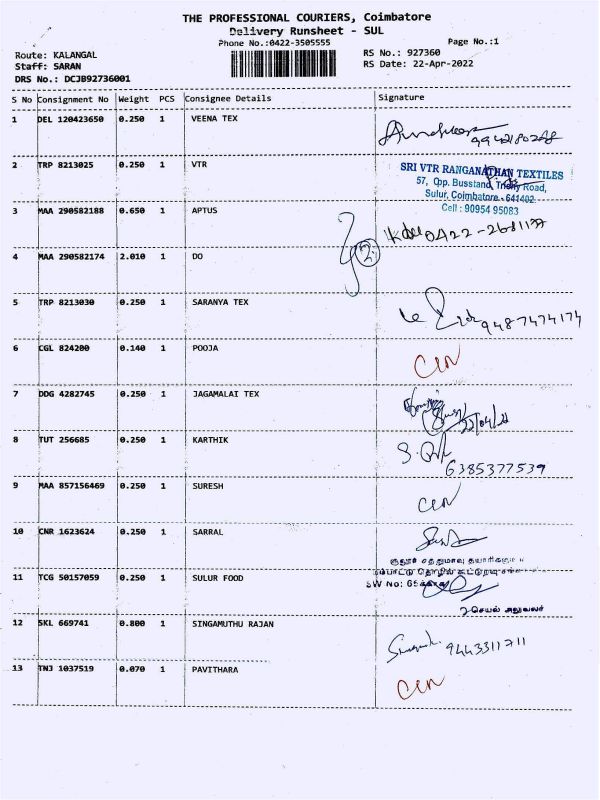 THE PROFESSIONAL COURIERS, Coimbatore
Delivery Runsheet - SUL
Phone No.:0422-3505555
Page No.:1
Route: KALANGAL
Staff: SARAN
DRS No.: DCJB92736001
RS No.: 927360
RS Date: 22-Apr-2022
S No Consignment No Weight PCS Consignee Details Signature
1 DEL 120423650 0.250 1 VEENA TEX
2 TRP 8213025 0.250 1 VTR
SRI VTR RANGANATHAN TEXTILES
57, Opp. Busstand, Trichy Road,
Sulur, Coimbatore - 641402.
Cell : 90954 95083
3 MAA 290582188 0.650 1 APTUS
0422-2681177
4 MAA 290582174 2.010 1 DO
2
5 TRP 8213030 0.250 1 SARANYA TEX
9487474174
6 CGL 824200 0.140 1 POOJA
7 DDG 4282745 0.250 1 JAGAMALAI TEX
22/04/22
8 TUT 256685 0.250 1 KARTHIK
6385377539
9 MAA 857156469 0.250 1 SURESH
10 CNR 1623624 0.250 1 SARRAL
11 TCG 50157059 0.250 1 SULUR FOOD
செயல் அலுவலர்
12 SKL 669741 0.800 1 SINGAMUTHU RAJAN
9443311711
13 TNJ 1037519 0.070 1 PAVITHARA